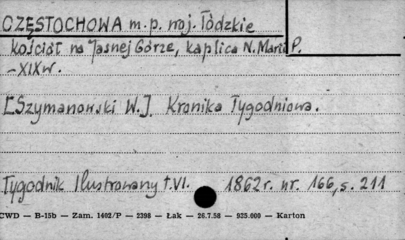 CZĘSTOCHOWA m.p. woj. Łódzkie
kościół na Jasnej Górze, kaplica N. Marii P.
– XIX w.
[Szymanowski W.]. Kronika Tygodniowa.
Tygodnik Ilustrowany t. VI. 1862 r. nr. 166, s. 211
CWD — B-15b — Zam. 1402/P — 2398 — Łak — 26.7.58 — 925.000 — Karton